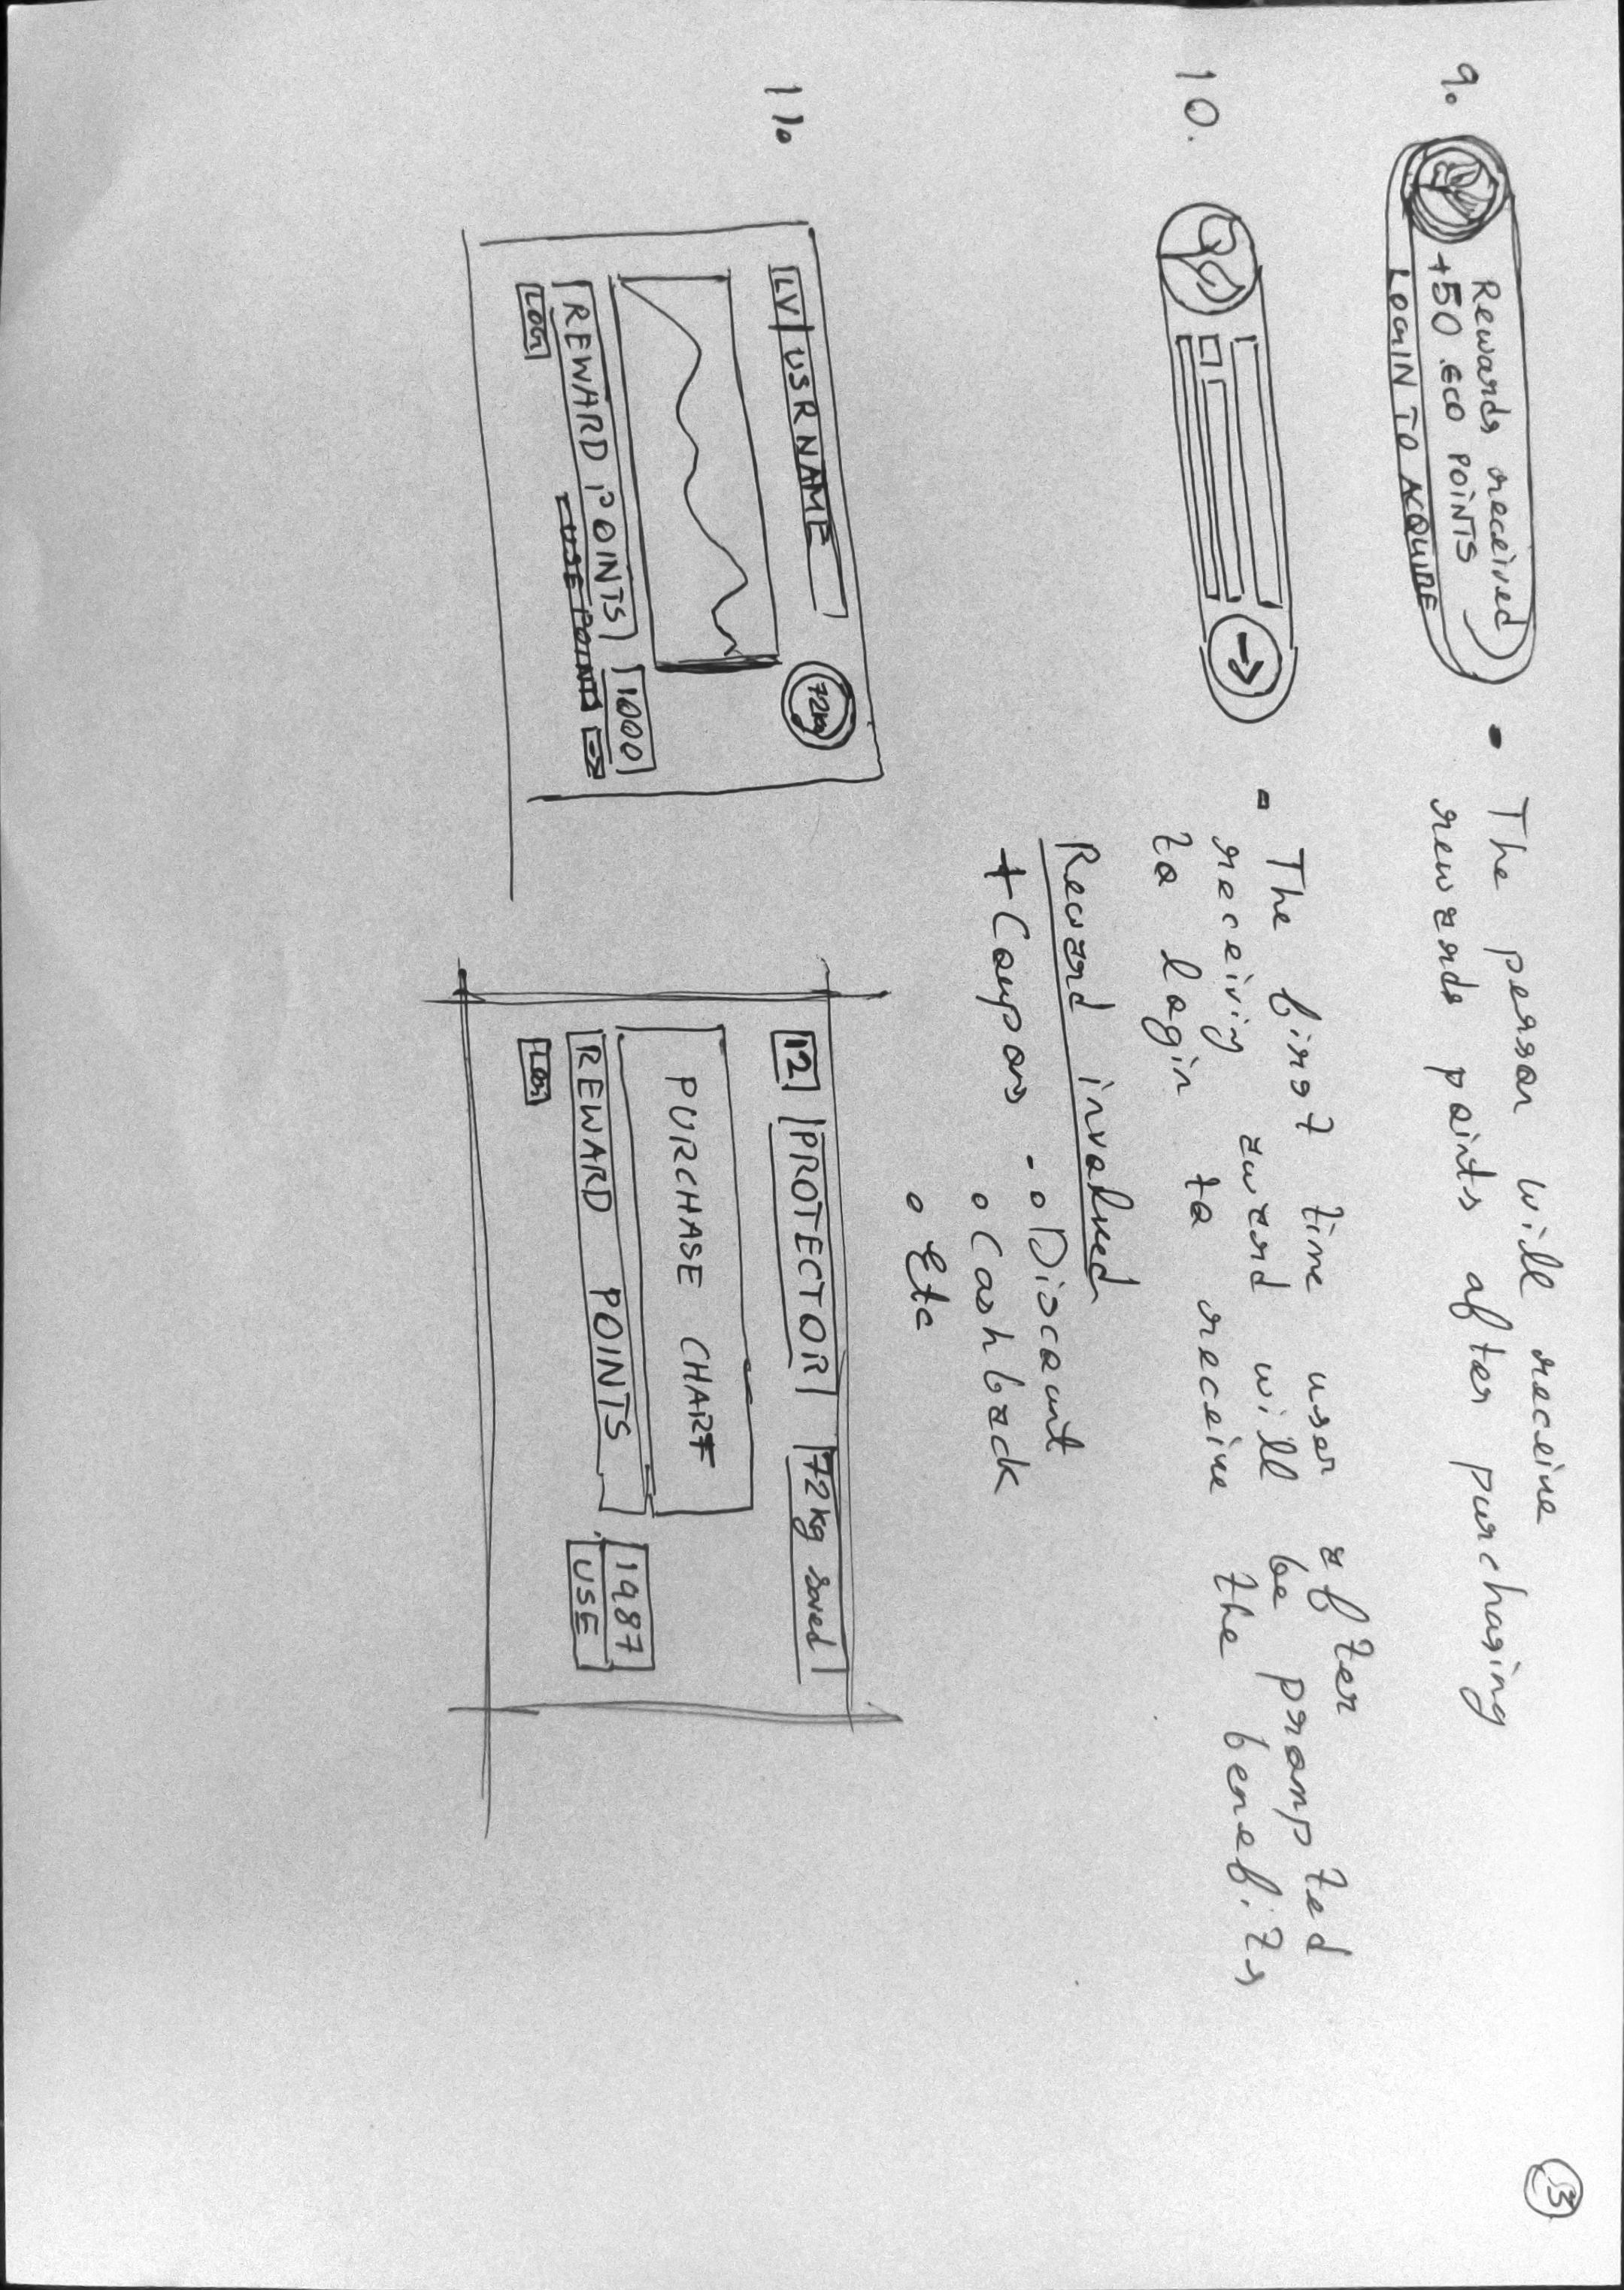 3
9.
Rewards received
+50 .ECO POINTS
LOGIN TO ACQUIRE
The person will receive
rewards points after purchasing
10.
The first time user after
receiving award will be prompted
to login to receive the benefits
Reward involved
+ Coupons - Discount
Cashback
Etc
11.
LV USR NAME 72kg
REWARD POINTS 1000
USE POINTS
12 PROTECTOR 72kg saved
PURCHASE CHART
REWARD POINTS 1987
USE